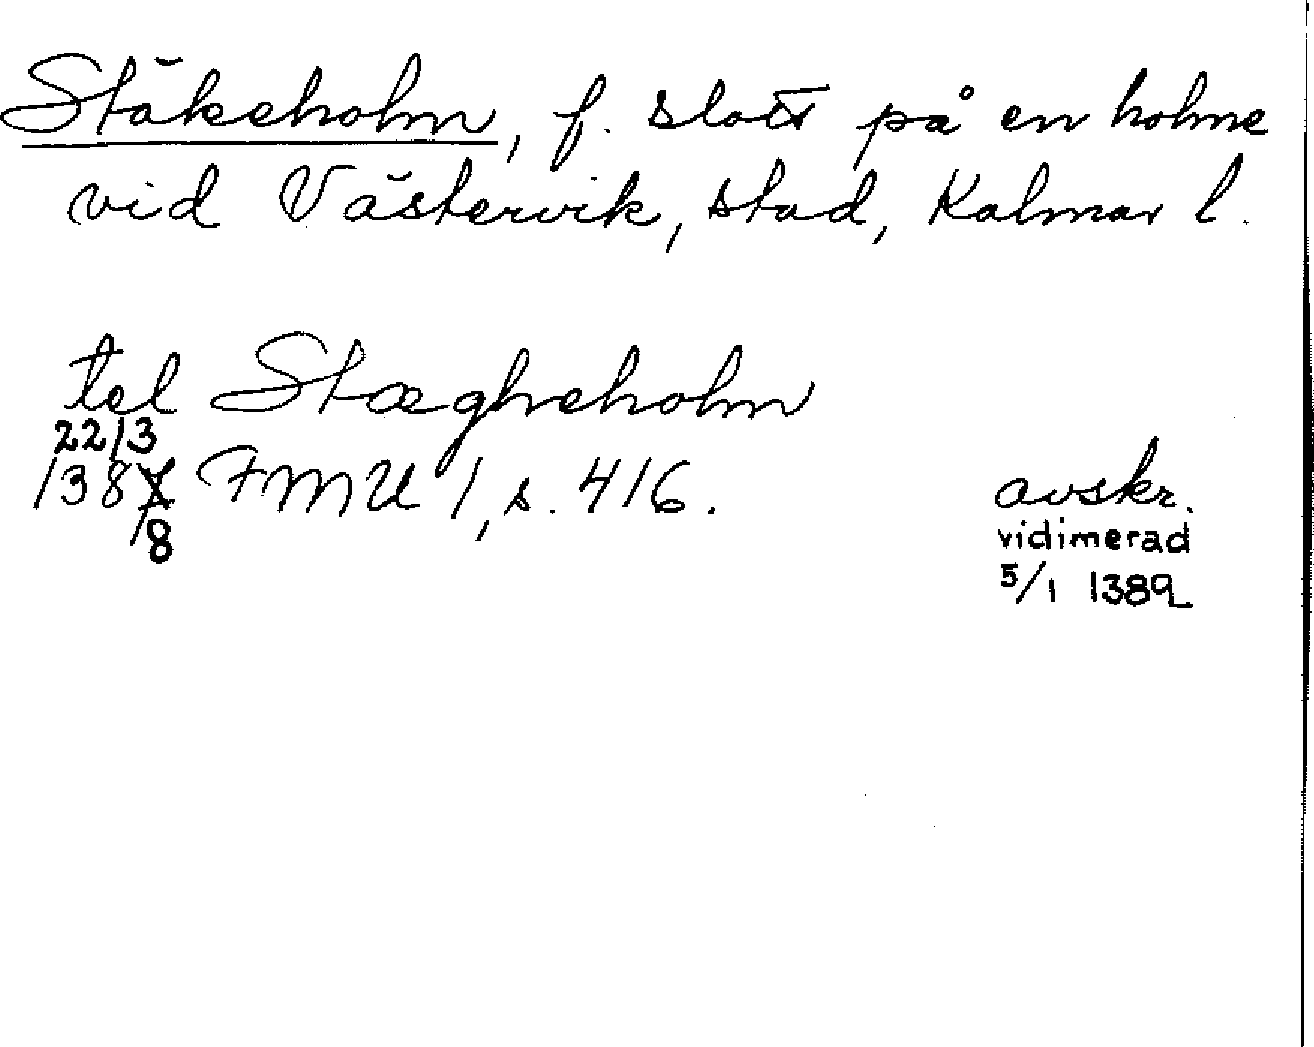 Stäkeholm, f. slott på en holme
vid Västervik, stad, Kalmar l.
tel Stægheholm
22/3
138 FMU 1, s. 416. avskr.
/8 vidimerad
5/1 1389